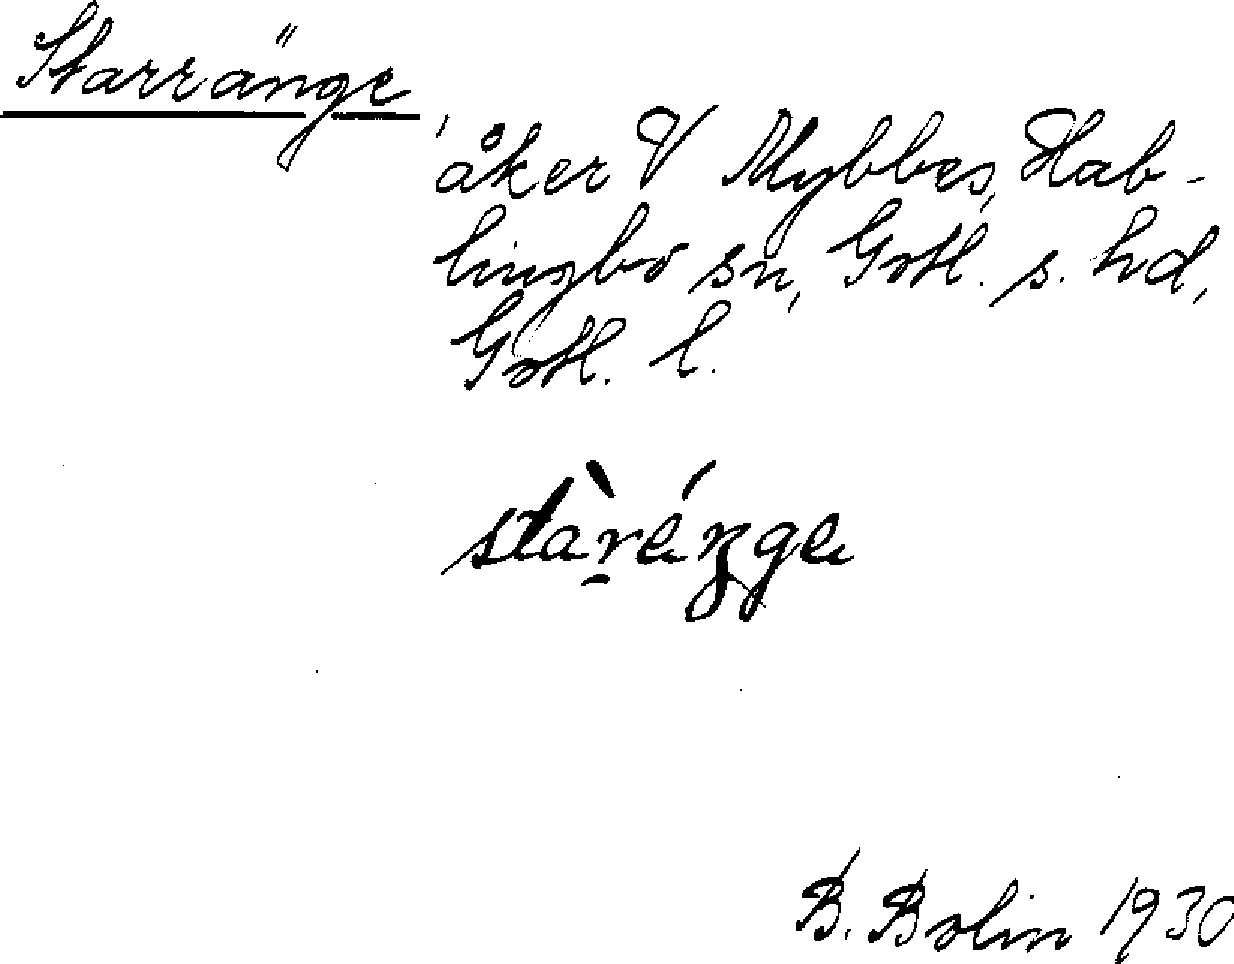 Starränge,
åker V Mybbes, Hab-
lingbo sn, Gotl. s. hd,
Gotl. l.
stàrénge
B. Bolin 1930